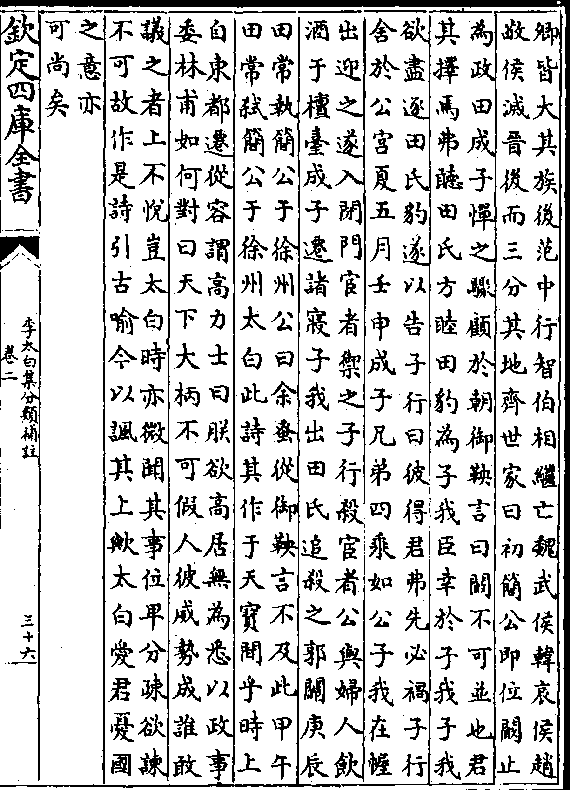 卿皆大其族後范中行智伯相繼亡魏武侯韓哀侯趙
敬侯滅晉後而三分其地齊世家曰初簡公即位闞止
為政田成子憚之驟顧於朝御鞅言曰闞不可並也君
其擇焉弗聴田氏方睦田豹為子我臣幸於子我子我
欲盡逐田氏豹遂以告子行曰彼得君弗先必禍子行
舍於公宫夏五月壬申成子兄弟四乘如公子我在幄
出迎之遂入閉門宦者禦之子行殺宦者公與婦人飲
酒于檀臺成子遷諸寢子我出田氏追殺之郭關庚辰
田常執簡公于徐州公曰余蚤從御鞅言不及此甲午
田常弑簡公于徐州太白此詩其作于天寳間乎時上
自東都還從容謂高力士曰朕欲髙居無為悉以政事
委林甫如何對曰天下大柄不可假人彼威勢成誰敢
議之者上不悅豈太白時亦微聞其事位卑分疎欲諫
不可故作是詩引古喻今以諷其上歟太白愛君憂國
之意亦
可尚矣
欽定四庫全書
李太白集分類補註
卷二
三十六